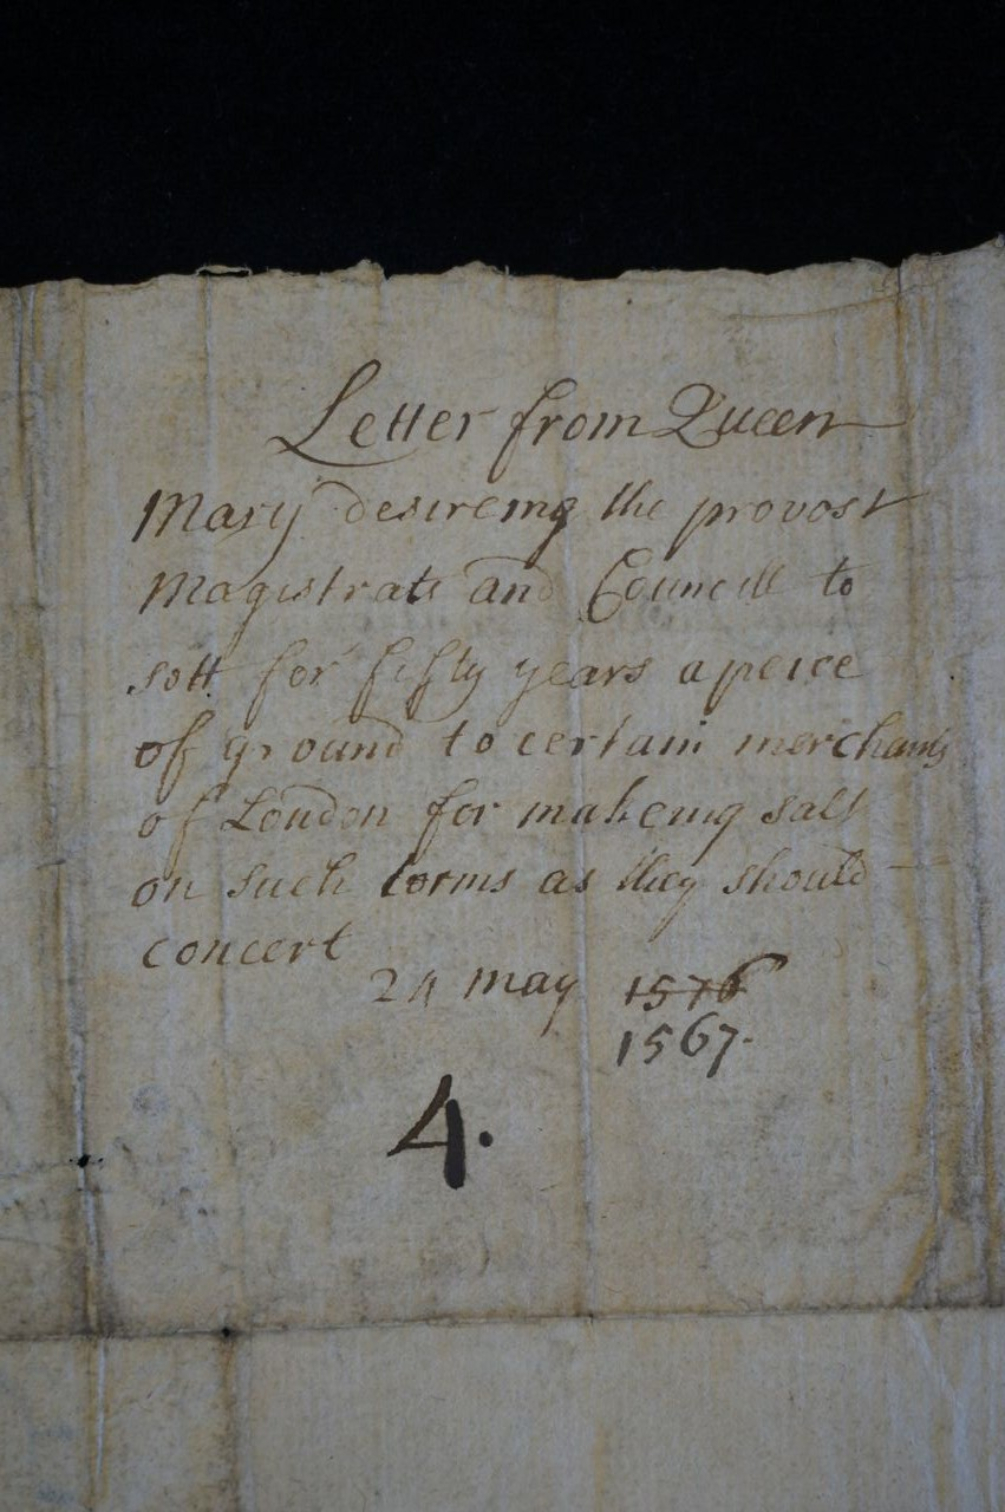 Letter from Queen
Mary desireing the provost
Magistrats and Councill to
sett for fifty years a peice
of ground to certain merchants
of London for makeing salt
on such terms as they should
concert
24 may 1576
1567.
4.